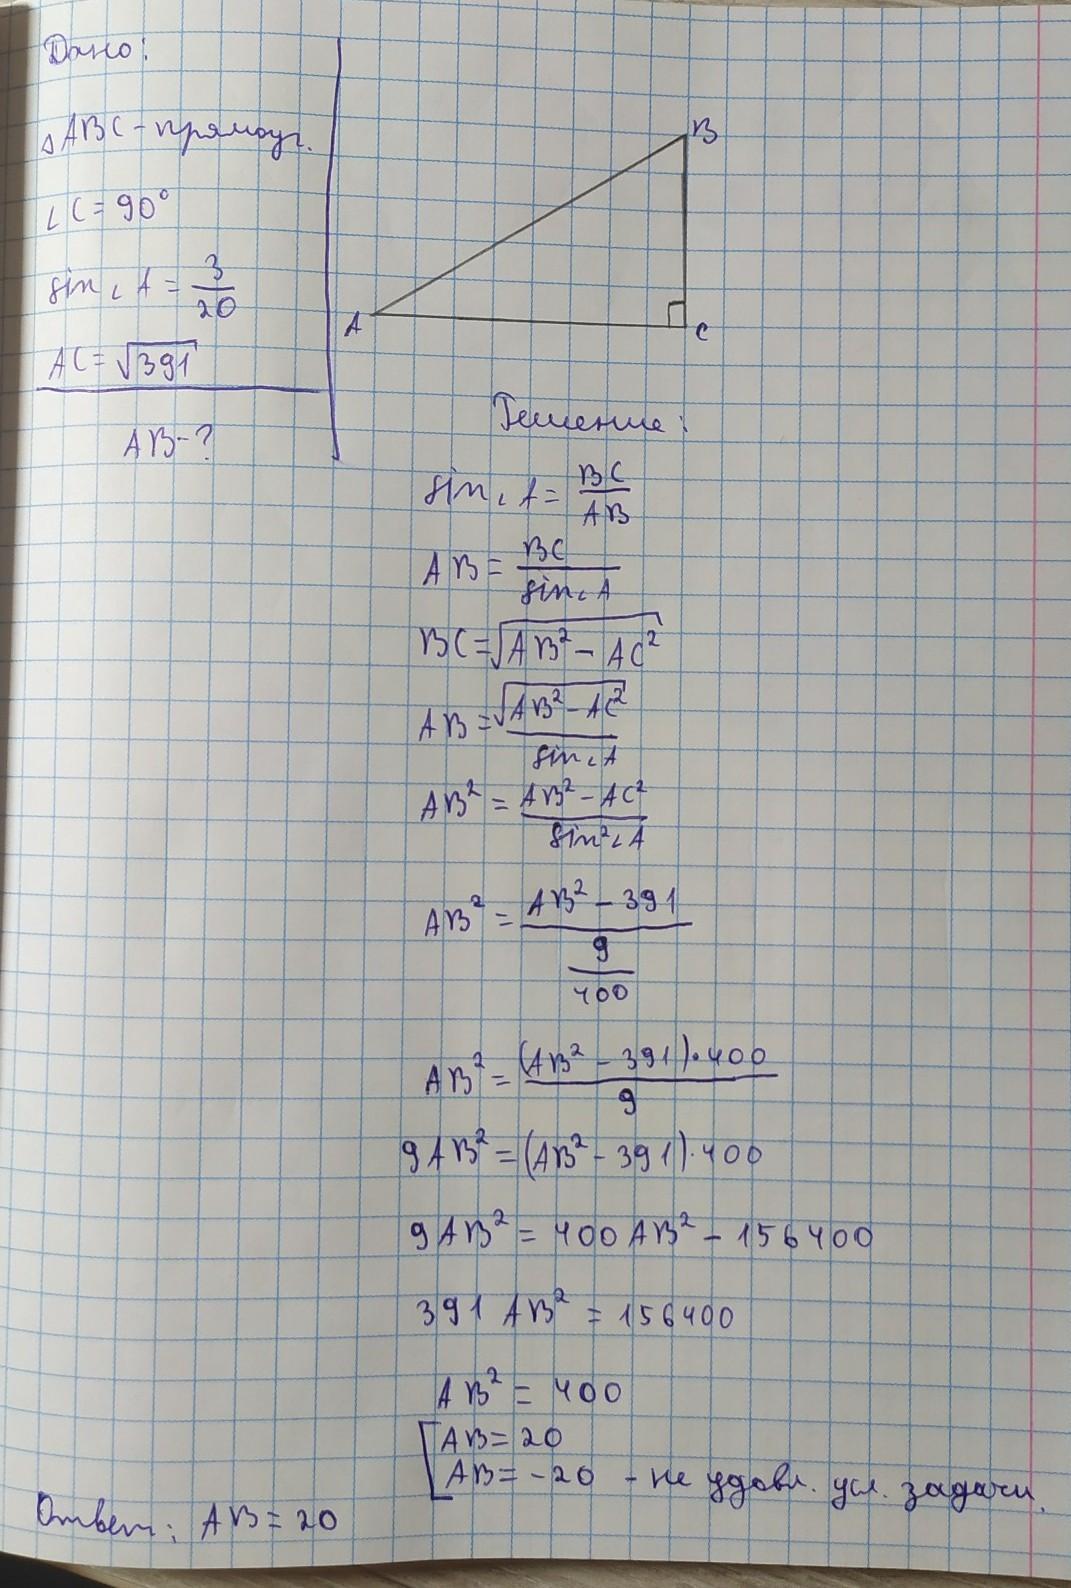 Дано:
△ABC - прямоуг.
∠C = 90°
sin∠A = 3/20
AC = √391
AB - ?
B
A
C
Решение:
sin∠A = BC/AB
AB = BC/sin∠A
BC = √(AB² - AC²)
AB = √(AB² - AC²)/sin∠A
AB² = (AB² - AC²)/sin²∠A
AB² = (AB² - 391)/(9/400)
AB² = (AB² - 391)·400/9
9AB² = (AB² - 391)·400
9AB² = 400AB² - 156400
391 AB² = 156400
AB² = 400
[AB = 20
AB = -20 - не удовл. усл. задачи.
Ответ: AB = 20